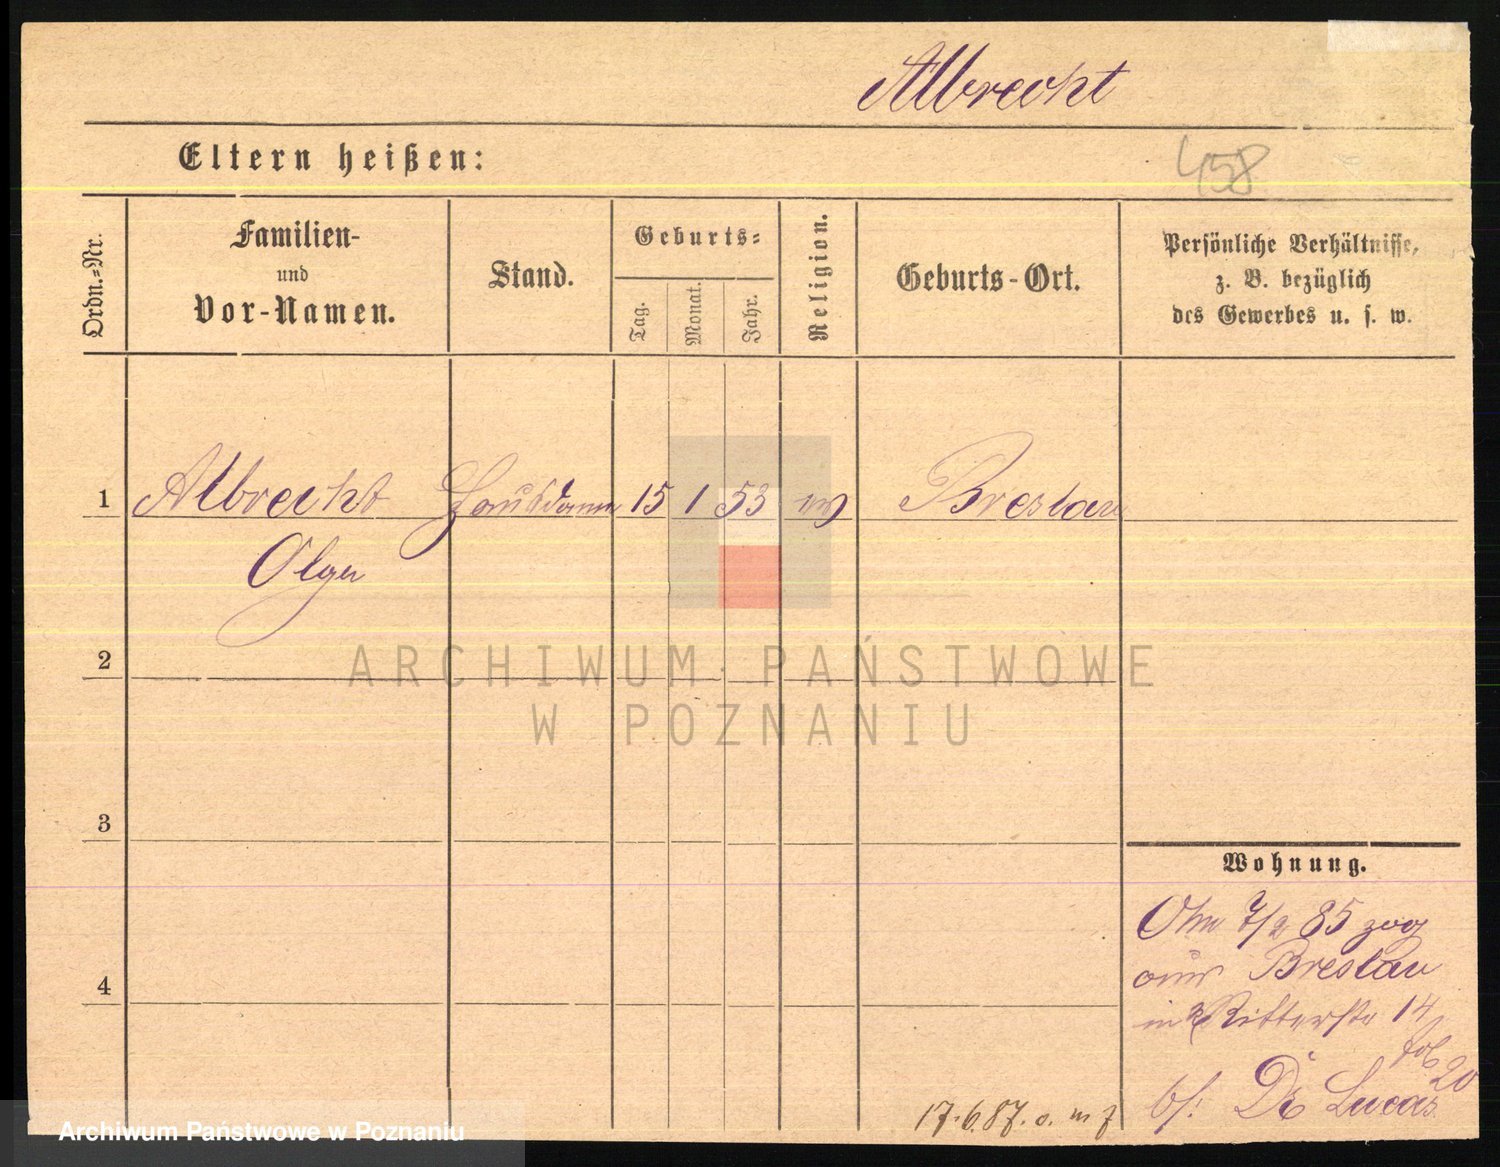 Albrecht
Eltern heißen:
458
Ordn.-Nr.
Familien-
und
Vor-Namen.
Stand.
Geburts-
Tag.
Monat.
Jahr.
Religion.
Geburts-Ort.
Persönliche Verhältnisse,
z. B. bezüglich
des Gewerbes u. s. w.
1 Albrecht 15 1 53 Breslau
Olga
2
ARCHIWUM PAŃSTWOWE
W POZNANIU
3
4
Wohnung.
7/2 85 zog
aus Breslau
in Ritterstr 14
fol 20
b/: Dr Lucas
17.6.87. o.
Archiwum Państwowe w Poznaniu